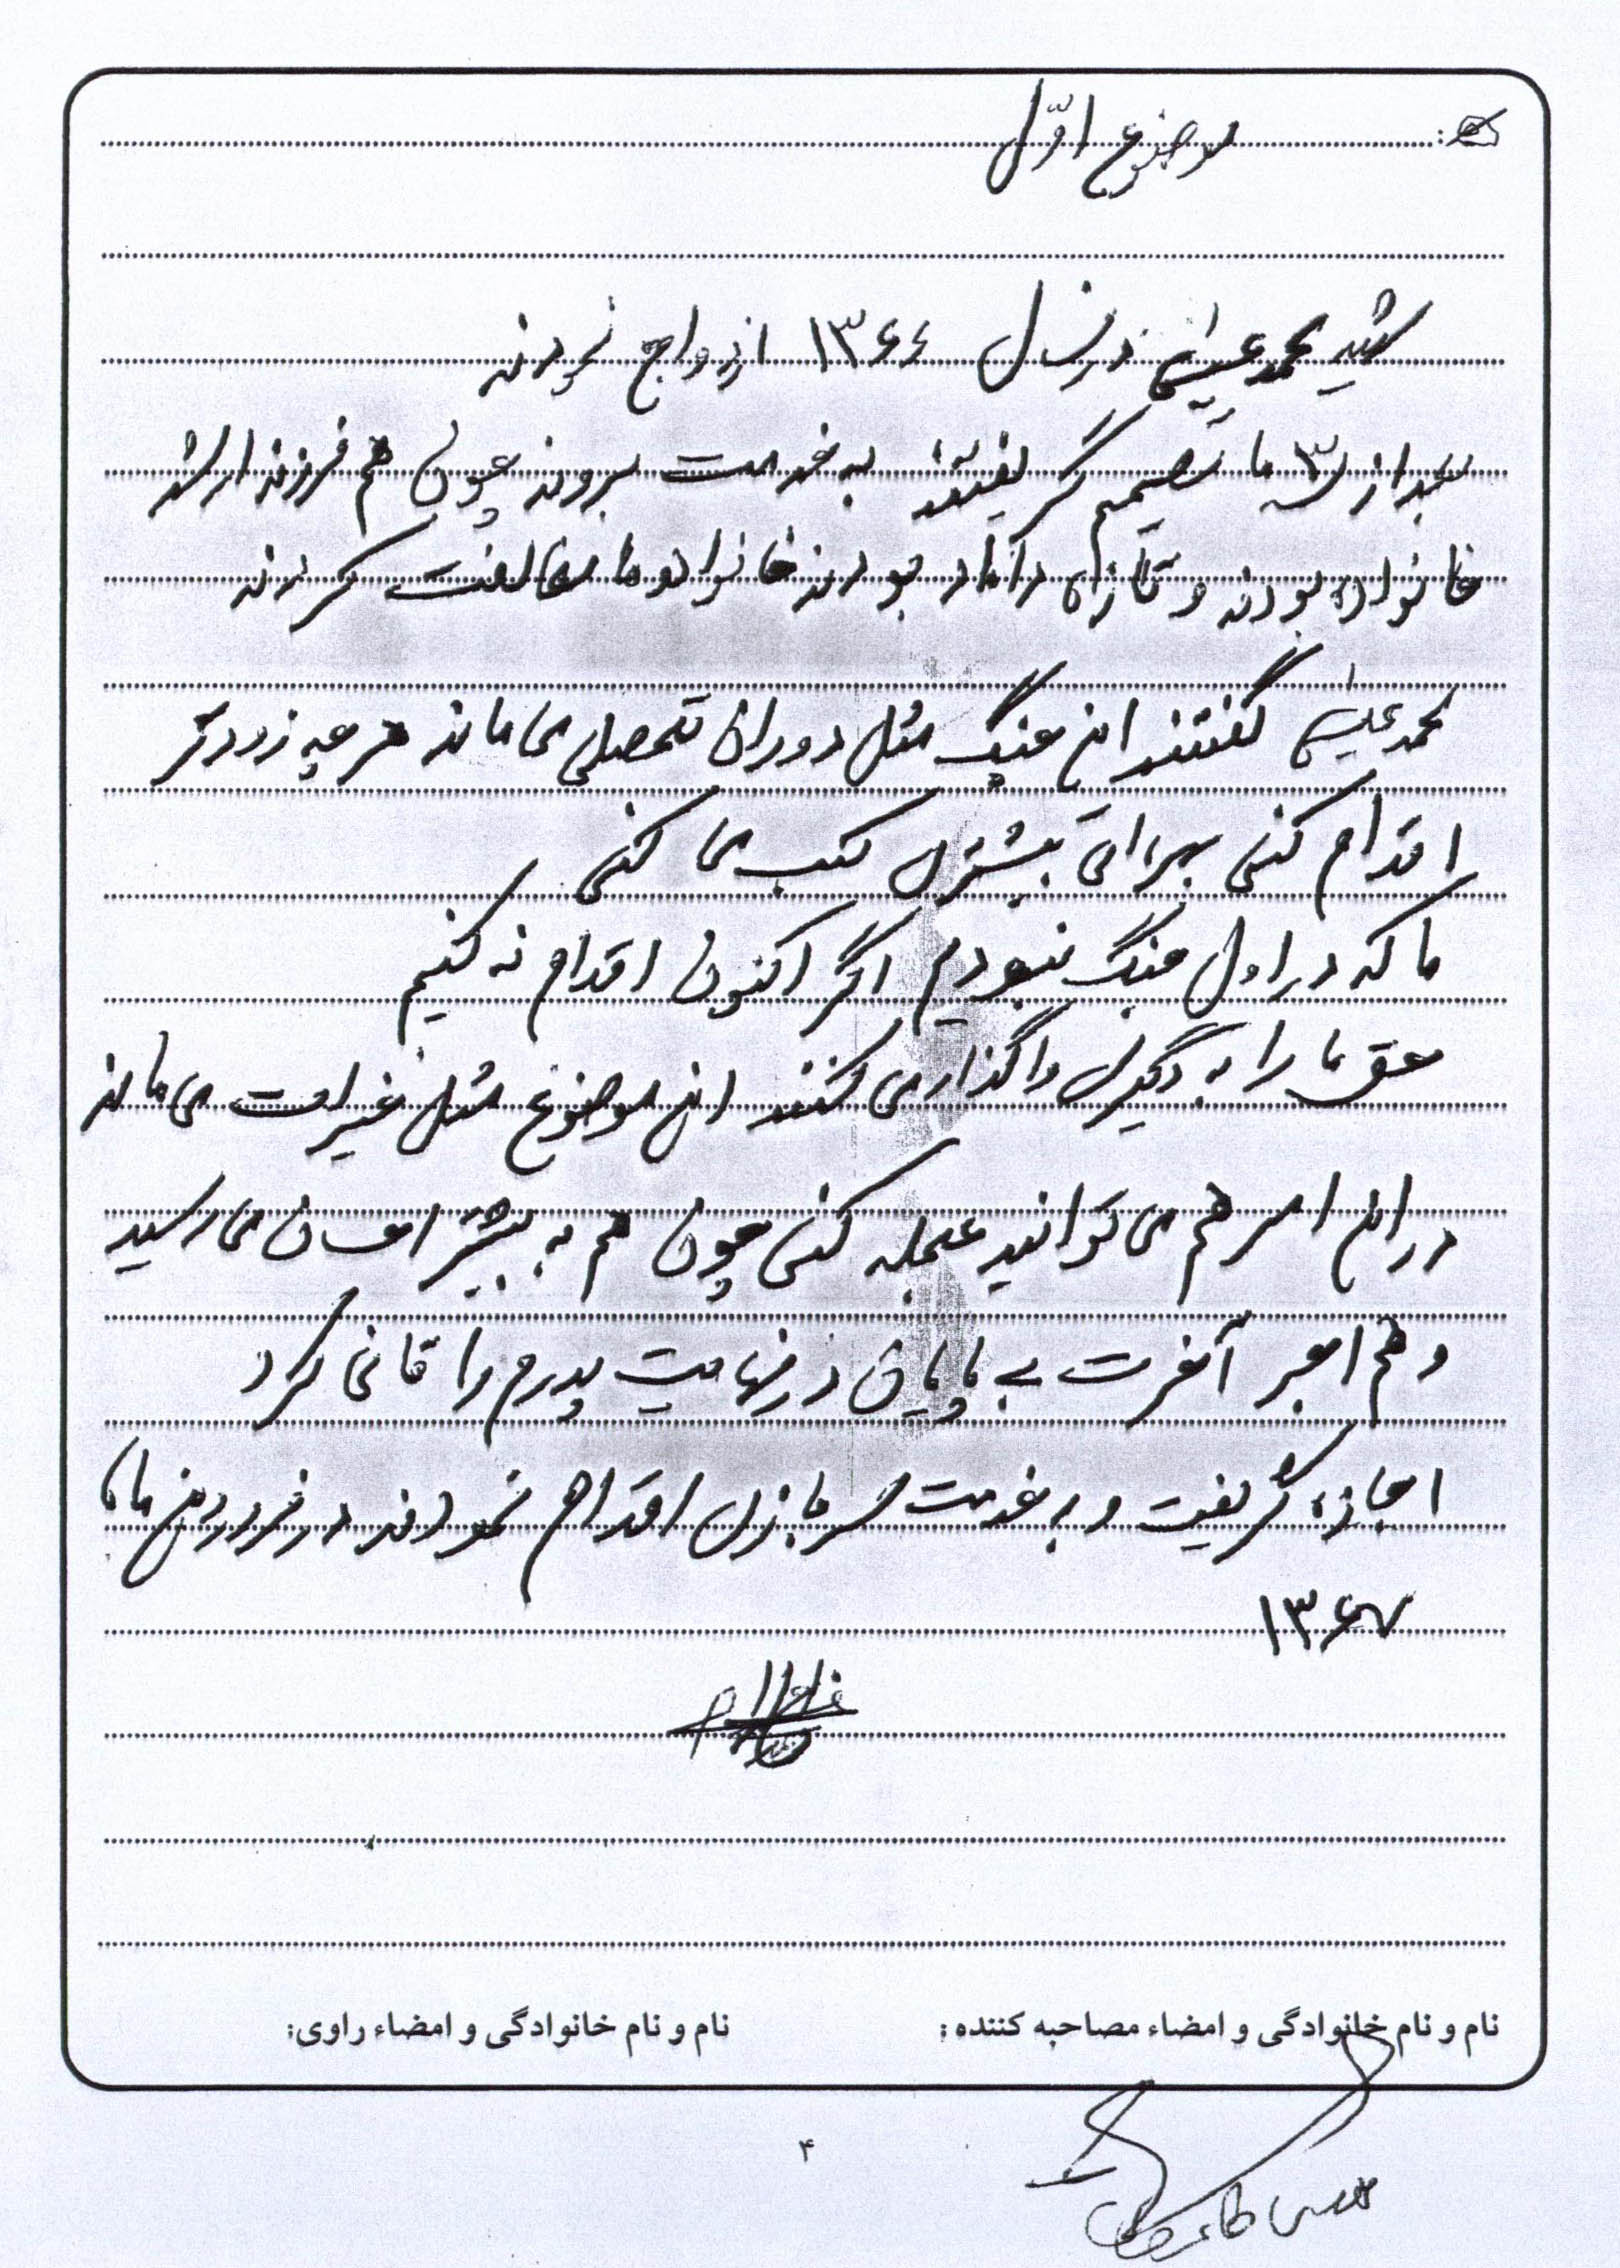 موضوع اوّل
شهید محمد عیسی در سال ۱۳۶۶ ازدواج نمودند
بعد از ۳ ما تصمیم گرفیتند به خدمت بروند چون هم فرزند ارشد
خانواده بودند و تازه داماد بودند خانواده ما مخالفت کردند
محمد عیسی گفتند این جنگ مثل دوران تحصلی می ماند هر چه زودتر
اقدام کنی بهرای بیشتری کسب می کنی
ما که در اول جنگ نبودیم اگر اکنون اقدام نه کنیم
حق ما را به دگیری واگذار می کنند این موضوع مثل غیرامت می ماند
در این امر هم می توانید عجله کنی چون هم به بیشتر احسان می رسید
و هم اجر آخرت بی پایان در نهایت پدرم را قانی کرد
اجازه گریفت و به خدمت سربازی اقدام نمودند در فروردین ماه
۱۳۶۷
نام و نام خانوادگی و امضاء مصاحبه کننده: نام و نام خانوادگی و امضاء راوی:
۴